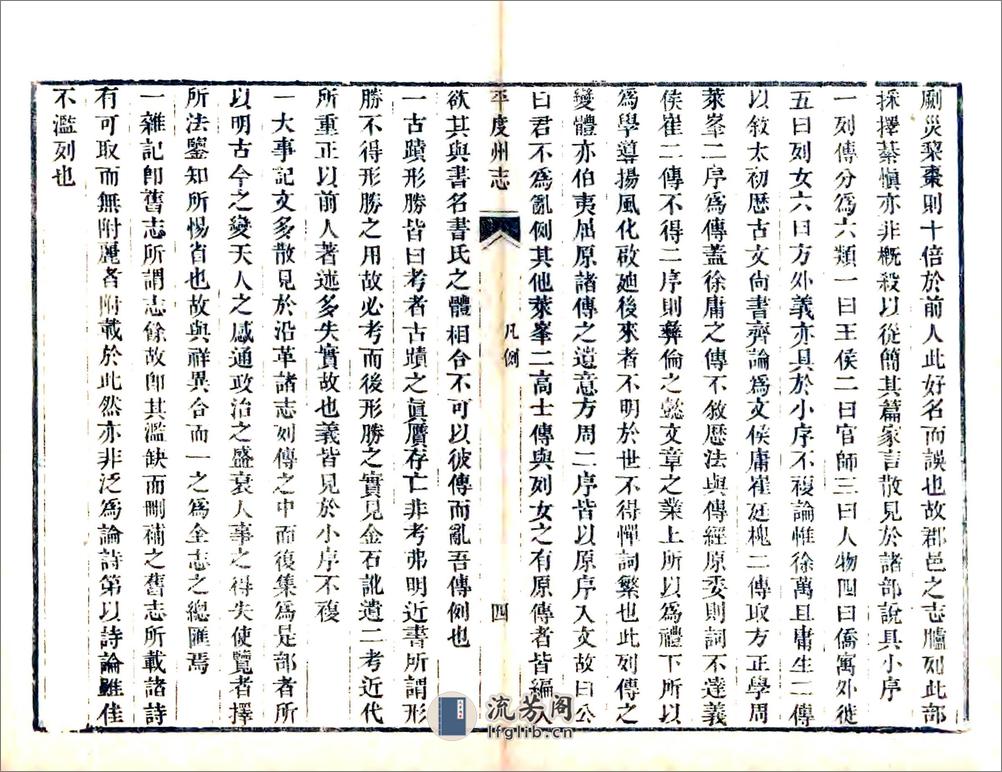 劂災棃棗則十倍於前人此好名而誤也故郡邑之志臚列此部
採擇綦愼亦非槪殺以從簡其篇家言散見於諸部說具小序
一列傳分爲六類一曰王侯二曰官師三曰人物四曰僑寓外徙
五曰列女六曰方外義亦具於小序不複論惟徐萬且庸生二傳
以敘太初歷古文尙書齊論爲文侯庸崔廷槐二傳取方正學周
萊峯二序爲傳蓋徐庸之傳不敘歷法與傳經原委則詞不達義
侯崔二傳不得二序則彝倫之懿文章之業上所以爲禮下所以
爲學導揚風化啟廸後來者不明於世不得憚詞繁也此列傳之
變體亦伯夷屈原諸傳之遺意方周二序皆以原序入文故曰公
曰君不爲亂例其他萊峯二高士傳與列女之有原傳者皆編入
平度州志
凡例
四
欲其與書名書氏之體相合不可以彼傳而亂吾傳例也
一古蹟形勝皆曰考者古蹟之眞贋存亡非考弗明近書所謂形
勝不得形勝之用故必考而後形勝之實見金石訛遺二考近代
所重正以前人著述多失實故也義皆見於小序不複
一大事記文多散見於沿革諸志列傳之中而復集爲是部者所
以明古今之變天人之感通政治之盛衰人事之得失使覽者擇
所法鑒知所惕省也故與祥異合而一之爲全志之總匯焉
一雜記卽舊志所謂志餘故卽其濫缺而刪補之舊志所載諸詩
有可取而無附麗者附載於此然亦非泛爲論詩第以詩論雖佳
不濫列也
流芳阁
lfglib.cn